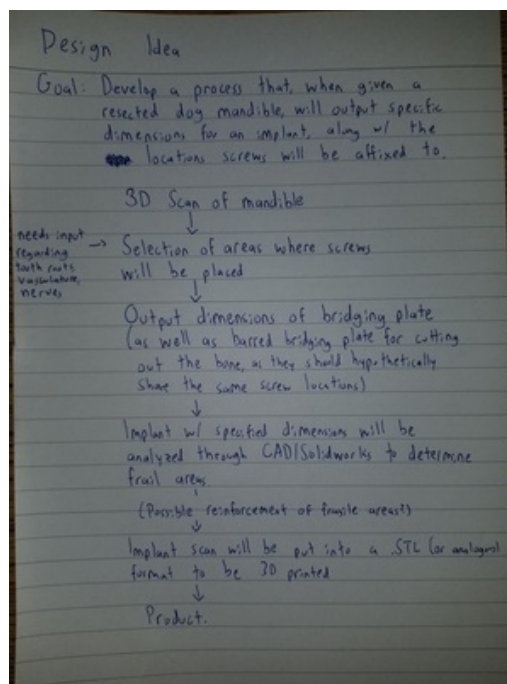 Design Idea
Goal: Develop a process that, when given a
resected dog mandible, will output specific
dimensions for an implant, along w/ the
locations screws will be affixed to.
3D Scan of mandible
needs input
regarding
tooth roots
vasculature,
nerves
Selection of areas where screws
will be placed
Output dimensions of bridging plate
(as well as barred bridging plate for cutting
out the bone, as they should hypothetically
share the same screw locations)
Implant w/ specified dimensions will be
analyzed through CAD/Solidworks to determine
frail areas.
(Possible reinforcement of fragile areas?)
Implant scan will be put into a STL (or analogous)
format to be 3D printed
Product.